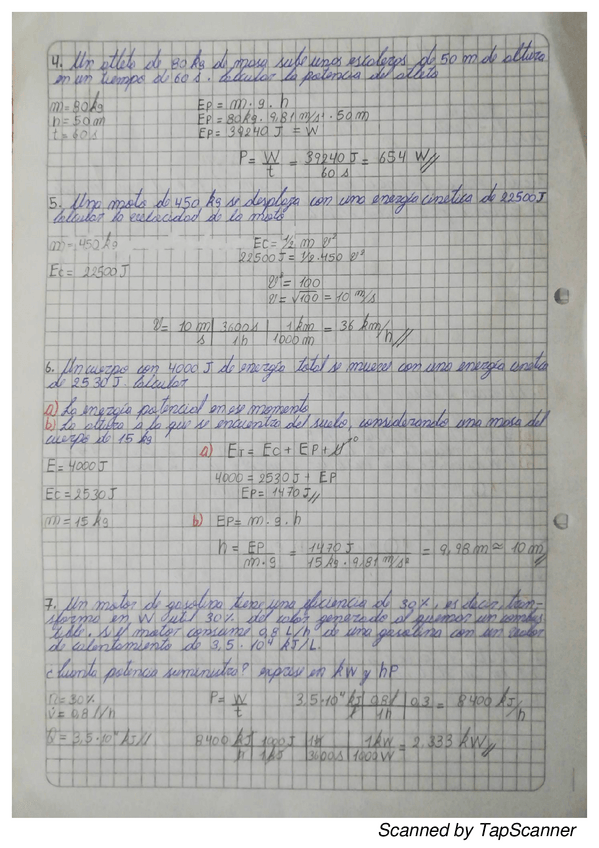 4. Un atleta de 80 kg de masa sube unos escaleras de 50 m de altura
en un tiempo de 60 s. Calcular la potencia del atleta
m = 80 kg    Ep = m · g · h
h = 50 m    Ep = 80 kg · 9,81 m/s² · 50 m
t = 60 s    Ep = 39240 J = W
P = W/t = 39240 J / 60 s = 654 W //
5. Una moto de 450 kg se desplaza con una energía cinética de 22500 J
calcular la velocidad de la moto
m = 450 kg    Ec = 1/2 m v²
22500 J = 1/2 · 450 v²
Ec = 22500 J
v² = 100
v = √100 = 10 m/s
v = 10 m/s | 3600 s/1 h | 1 km/1000 m = 36 km/h //
6. Un cuerpo con 4000 J de energía total se mueve con una energía cinética
de 2530 J. calcular
a) La energía potencial en ese momento
b) La altura a la que se encuentra del suelo, considerando una masa del
cuerpo de 15 kg
a) ET = Ec + Ep +
E = 4000 J
4000 = 2530 J + Ep
Ec = 2530 J    Ep = 1470 J //
m = 15 kg    b) Ep = m · g · h
h = Ep/m·g = 1470 J / 15 kg · 9,81 m/s² = 9,98 m ≈ 10 m //
7. Un motor de gasolina tiene una eficiencia de 30%, es decir, trans-
forma en W útil 30% del calor generado al quemar un combus
tible. Si el motor consume 0,8 L/h de una gasolina con un calor
de calentamiento de 3,5 · 10⁴ kJ/L.
¿Cuánta potencia suministra? exprese en kW y hP
= 30%    P = W/t    3,5·10⁴ kJ/l | 0,8 l/1 h | 0,3 = 8400 kJ/h
v̇ = 0,8 l/h
Q = 3,5·10⁴ kJ/l    8400 kJ/h | 1000 J/1 kJ | 1 h/3600 s | 1 kW/1000 W = 2.333 kW //
Scanned by TapScanner